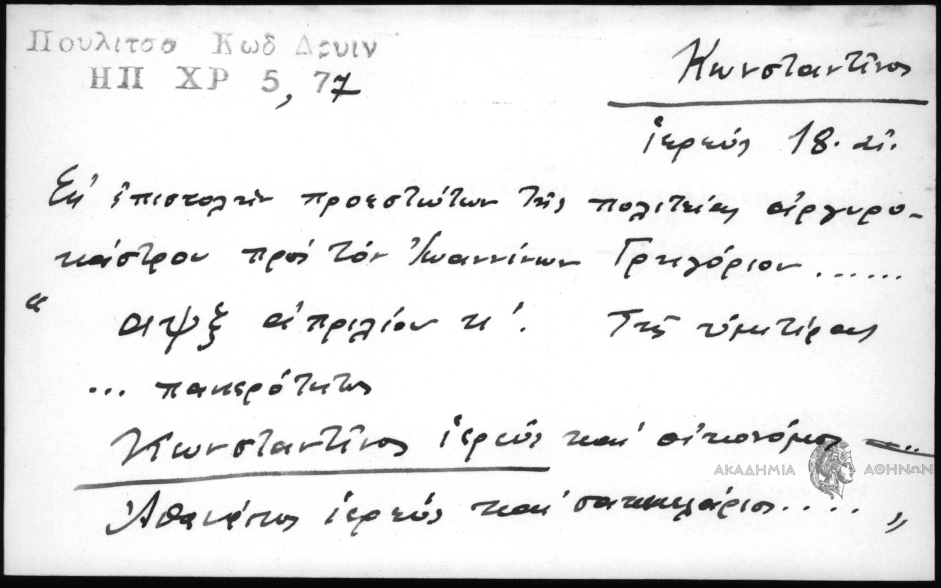 Πουλιτσα Κωδ Δρυιν
ΗΠ ΧΡ 5, 77
Κωνσταντῖνος
ἱερεύς 18. αἰ.
Ἐξ ἐπιστολῆς προεστώτων τῆς πολιτείας ἀργυρο-
κάστρου πρός τόν Ἰωαννίνων Γρηγόριον ......
“ αιψξ ἀπριλίου κ'. Τῆς ὑμετέρας
... πανιερότητος
Κωνσταντῖνος ἱερεύς καί οἰκονόμος —...
Ἀθανάσιος ἱερεύς καί σακκελάριος.....„
ΑΚΑΔΗΜΙΑ ΑΘΗΝΩΝ